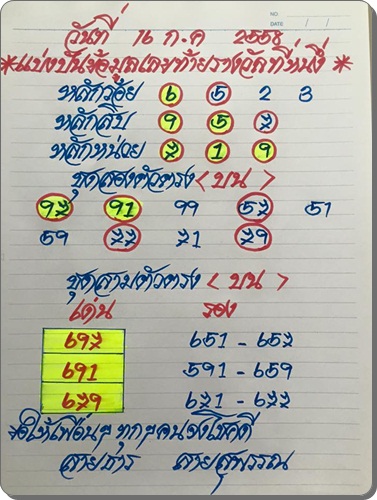 NO
DATE / /
วันที่ 16 ก.ค 2558
*แบ่งปันข้อมูลเลขท้ายรางวัลที่หนึ่ง *
หลักร้อย 6 5 2 3
หลักสิบ 9 5 7
หลักหน่วย 7 1 9
ชุดสองตัวตรง < บน >
97 91 99 57 51
59 77 71 79
ชุดสามตัวตรง < บน >
เด่น รอง
697 651 - 657
691 591 - 659
679 671 - 677
*ขอให้เพื่อนๆ ทุกๆคนจงโชคดี
สายธาร สายสุพรรณ